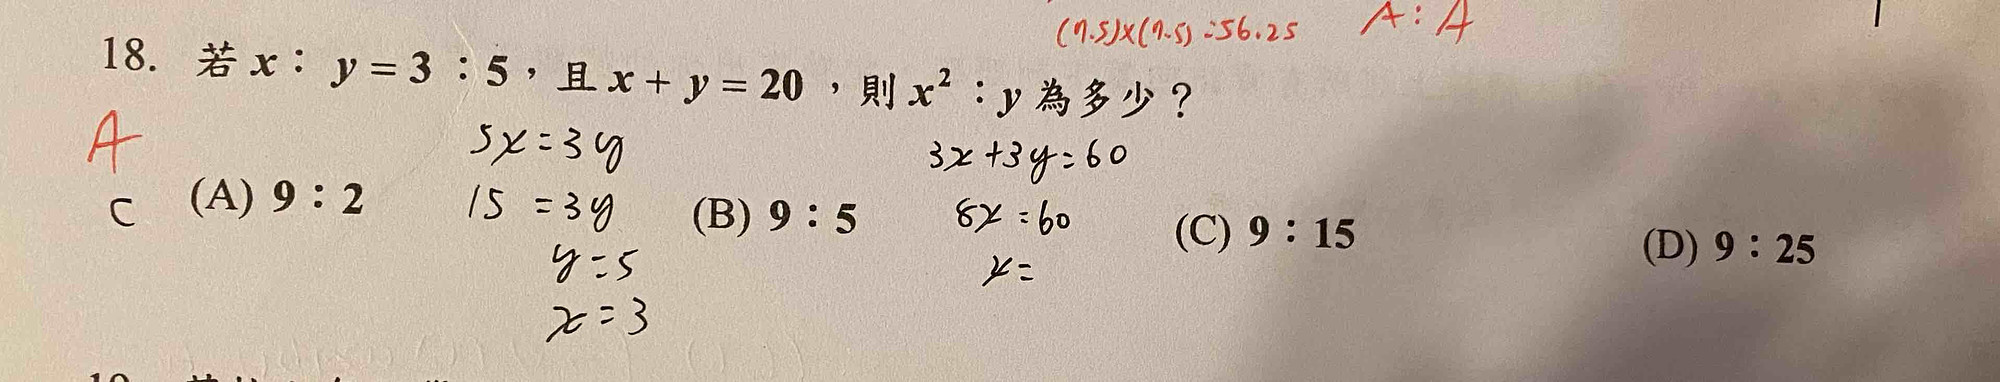 (7.5)x(7.5)=56.25 A:A
18. 若 x : y = 3 : 5，且 x + y = 20，則 x² : y 為多少？
A
5x=3y 3x+3y=60
C (A) 9 : 2 15 =3y (B) 9 : 5 8x=60 (C) 9 : 15 (D) 9 : 25
y=5 x=
x=3